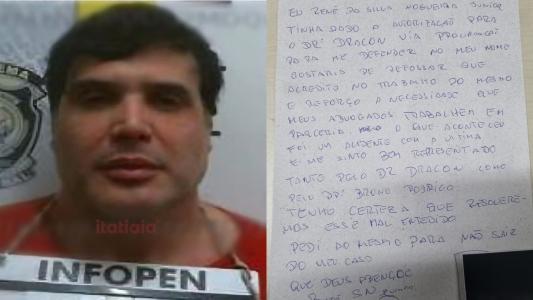 itatiaia
INFOPEN
EU RENÉ DA SILVA NOGUEIRA JUNIOR
TINHA DADO A AUTORIZAÇÃO PARA
O DR DRACON VIA PROCURAÇÃO
PARA ME DEFENDER NO MEU NOME
GOSTARIA DE REFORSAR QUE
ACREDITO NO TRABALHO DO MESMO
E REFORÇO A NECESSIDADE QUE
MEUS ADVOGADOS TRABALHEM EM
PARCERIA O QUE ACONTECEU
FOI UM ACIDENTE COM A VITIMA
E ME SINTO BEM REPRESENTADO
TANTO PELO DR DRACON COMO
PELO DR BRUNO RODRIGO
TENHO CERTEZA QUE RESOLVERE-
MOS ESSE MAL ENTEDIDO
PEDI AO MESMO PARA NÃO SAIR
DO MEU CASO
QUE DEUS ABENÇOE